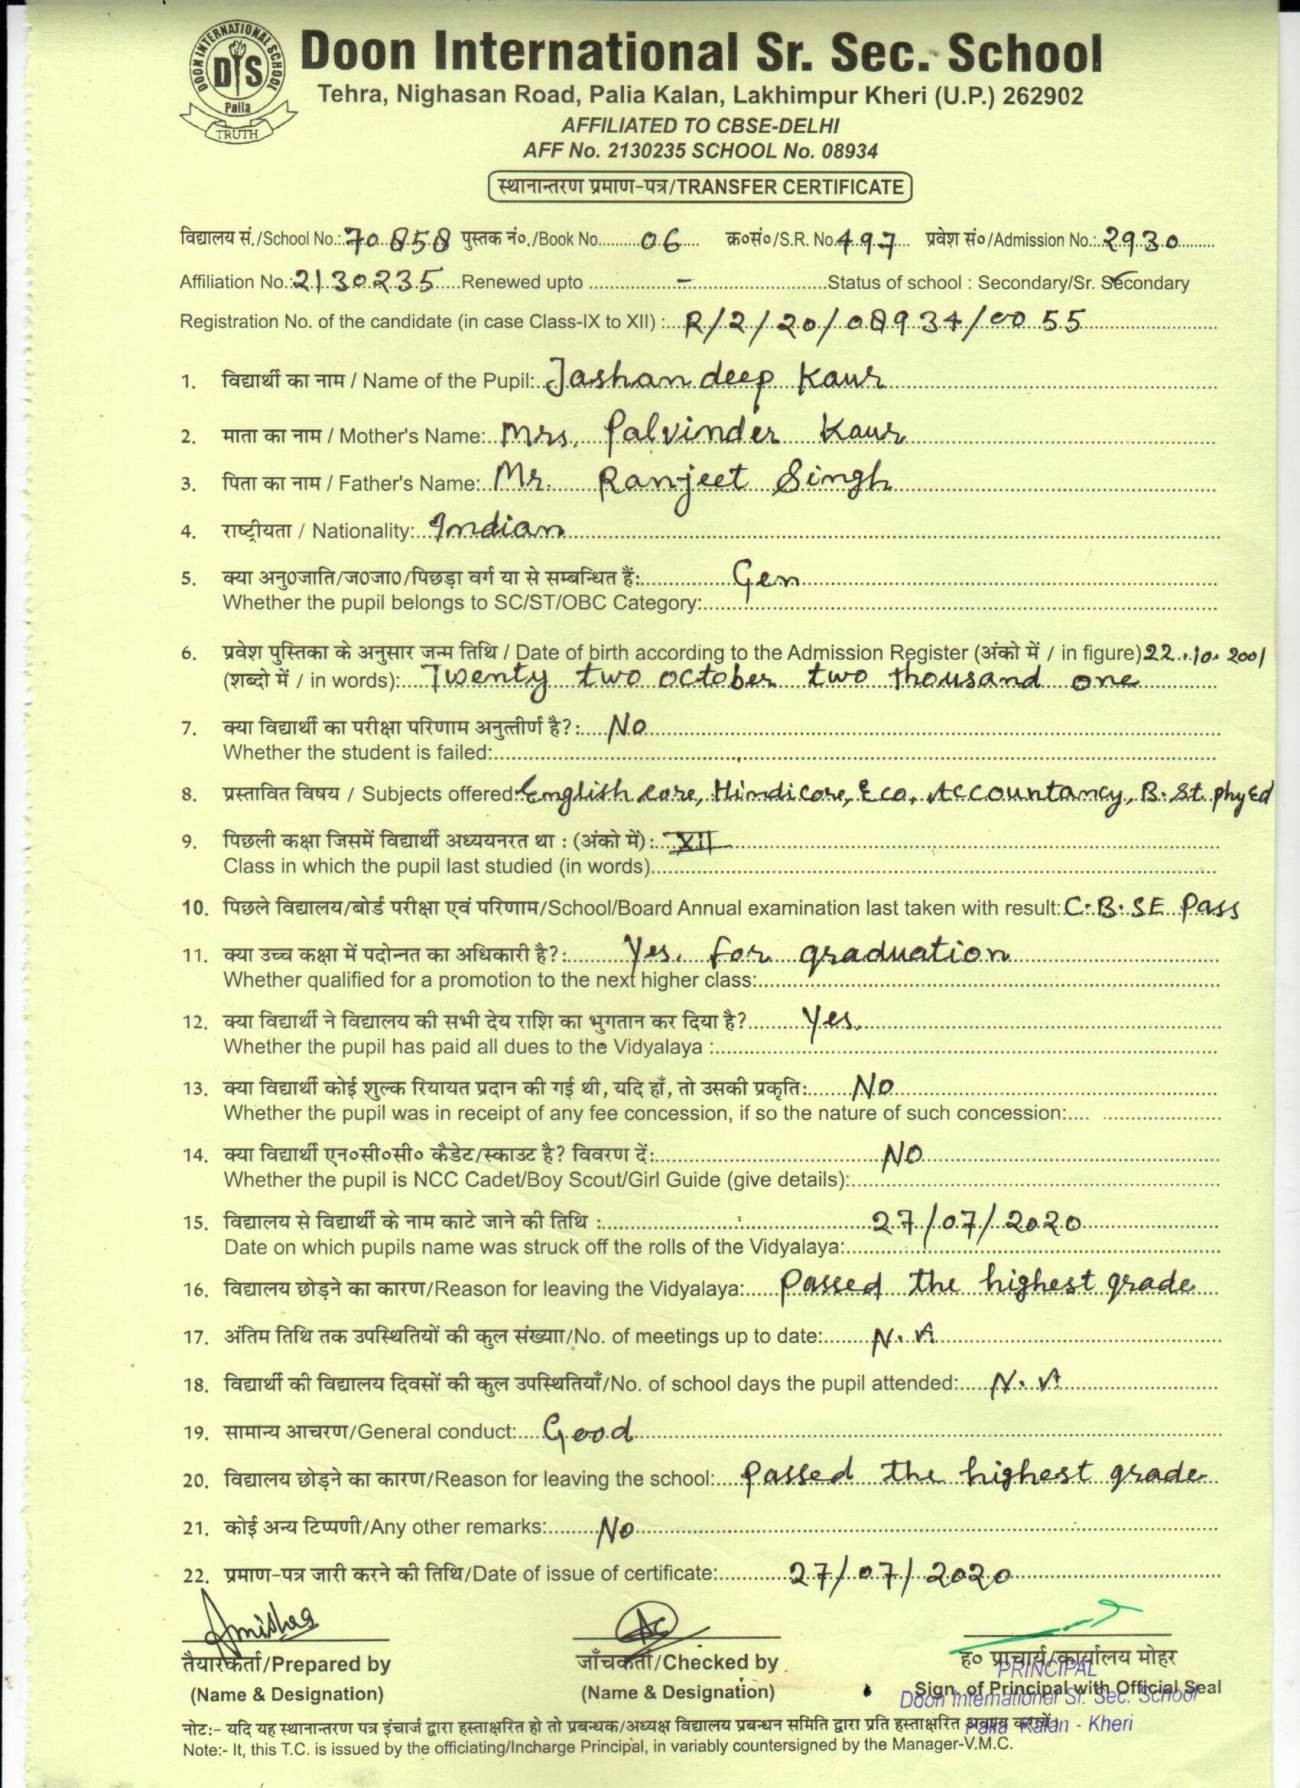 DOON INTERNATIONAL SCHOOL
DIS
Palia
TRUTH
Doon International Sr. Sec. School
Tehra, Nighasan Road, Palia Kalan, Lakhimpur Kheri (U.P.) 262902
AFFILIATED TO CBSE-DELHI
AFF No. 2130235 SCHOOL No. 08934
स्थानान्तरण प्रमाण-पत्र/TRANSFER CERTIFICATE
विद्यालय सं./School No.: 70858 पुस्तक नं०./Book No. 06 क्र०सं०/S.R. No. 497 प्रवेश सं०/Admission No.: 2930
Affiliation No.: 2130235 Renewed upto - Status of school : Secondary/Sr. Secondary
Registration No. of the candidate (in case Class-IX to XII) : R/2/20/08934/0055
1. विद्यार्थी का नाम / Name of the Pupil: Jashandeep Kaur
2. माता का नाम / Mother's Name: Mrs. Palvinder Kaur
3. पिता का नाम / Father's Name: Mr. Ranjeet Singh
4. राष्ट्रीयता / Nationality: Indian
5. क्या अनु0जाति/ज0जा0/पिछड़ा वर्ग या से सम्बन्धित हैं: Gen
Whether the pupil belongs to SC/ST/OBC Category:
6. प्रवेश पुस्तिका के अनुसार जन्म तिथि / Date of birth according to the Admission Register (अंको में / in figure) 22.10.2001
(शब्दो में / in words): Twenty two october two thousand one
7. क्या विद्यार्थी का परीक्षा परिणाम अनुत्तीर्ण है?: No
Whether the student is failed:
8. प्रस्तावित विषय / Subjects offered: English core, Hindi core, Eco, Accountancy, B.St. phy Ed
9. पिछली कक्षा जिसमें विद्यार्थी अध्ययनरत था : (अंको में): XII
Class in which the pupil last studied (in words)
10. पिछले विद्यालय/बोर्ड परीक्षा एवं परिणाम/School/Board Annual examination last taken with result: C.B.SE Pass
11. क्या उच्च कक्षा में पदोन्नत का अधिकारी है?: Yes. for graduation
Whether qualified for a promotion to the next higher class:
12. क्या विद्यार्थी ने विद्यालय की सभी देय राशि का भुगतान कर दिया है? Yes.
Whether the pupil has paid all dues to the Vidyalaya :
13. क्या विद्यार्थी कोई शुल्क रियायत प्रदान की गई थी, यदि हाँ, तो उसकी प्रकृति: NO
Whether the pupil was in receipt of any fee concession, if so the nature of such concession:
14. क्या विद्यार्थी एन०सी०सी० कैडेट/स्काउट है? विवरण दें: NO
Whether the pupil is NCC Cadet/Boy Scout/Girl Guide (give details):
15. विद्यालय से विद्यार्थी के नाम काटे जाने की तिथि : 27/07/2020
Date on which pupils name was struck off the rolls of the Vidyalaya:
16. विद्यालय छोड़ने का कारण/Reason for leaving the Vidyalaya: Passed the highest grade
17. अंतिम तिथि तक उपस्थितियों की कुल संख्याा/No. of meetings up to date: N.A
18. विद्यार्थी की विद्यालय दिवसों की कुल उपस्थितियाँ/No. of school days the pupil attended: N.A
19. सामान्य आचरण/General conduct: Good
20. विद्यालय छोड़ने का कारण/Reason for leaving the school: Passed the highest grade
21. कोई अन्य टिप्पणी/Any other remarks: No
22. प्रमाण-पत्र जारी करने की तिथि/Date of issue of certificate: 27/07/2020
तैयारकर्ता/Prepared by जाँचकर्ता/Checked by ह० प्राचार्य/कार्यालय मोहर
PRINCIPAL
(Name & Designation) (Name & Designation) Sign. of Principal with Official Seal
Doon International Sr. Sec. School
नोट:- यदि यह स्थानान्तरण पत्र इंचार्ज द्वारा हस्ताक्षरित हो तो प्रबन्धक/अध्यक्ष विद्यालय प्रबन्धन समिति द्वारा प्रति हस्ताक्षरित अवश्य करायें।
Palia Kalan - Kheri
Note:- It, this T.C. is issued by the officiating/Incharge Principal, in variably countersigned by the Manager-V.M.C.